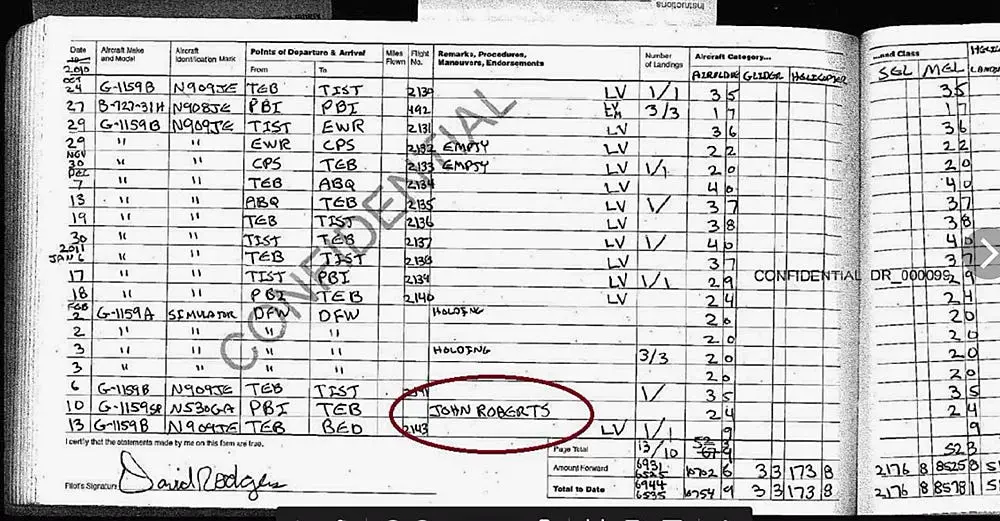 Instructions
Date Aircraft Make and Model Aircraft Identification Mark Points of Departure & Arrival From To Miles Flown Flight No. Remarks, Procedures, Maneuvers, Endorsements Number of Landings Aircraft Category... and Class
2010 AIRPLANE GLIDER HELICOPTER SGL MEL
OCT 24 G-1159B N909JE TEB TIST 2130 LV 1/1 3 5 3 5
27 B-727-31H N908JE PBI PBI 492 3/3 1 7 1 7
29 G-1159B N909JE TIST EWR 2131 LV 3 6 3 6
29 " " EWR CPS 2132 EMPTY LV 2 2 2 2
NOV 30 " " CPS TEB 2133 EMPTY LV 1/1 2 0 2 0
DEC 7 " " TEB ABQ 2134 LV 4 0 4 0
13 " " ABQ TEB 2135 LV 1/ 3 7 3 7
19 " " TEB TIST 2136 LV 3 8 3 8
30 " " TIST TEB 2137 LV 1/ 4 0 4 0
2011 JAN 6 " " TEB TIST 2138 LV 3 7 3 7
17 " " TIST PBI 2139 LV 1/1 2 9 2 9
CONFIDENTIAL DR_000095
18 " " PBI TEB 2140 LV 2 4 2 4
FEB 2 G-1159A SIMULATOR DFW DFW HOLDING 2 0 2 0
2 " " " " 2 0 2 0
3 " " " " HOLDING 3/3 2 0 2 0
3 " " " " 2 0 2 0
6 G-1159B N909JE TEB TIST 1/ 3 5 3 5
10 N530GA PBI TEB JOHN ROBERTS 2 4 2 4
13 G-1159B N909JE TEB BED 2143 LV 1/1 9 9
CONFIDENTIAL
I certify that the statements made by me on this form are true.
Page Total 13/10 52 3
Amount Forward 6931 6525 10702 6 3 3 173 8 2176 8 8525 8
Total to Date 6944 6535 10754 9 3 3 173 8 2176 8 8578 1
Pilot's Signature David Rodgers